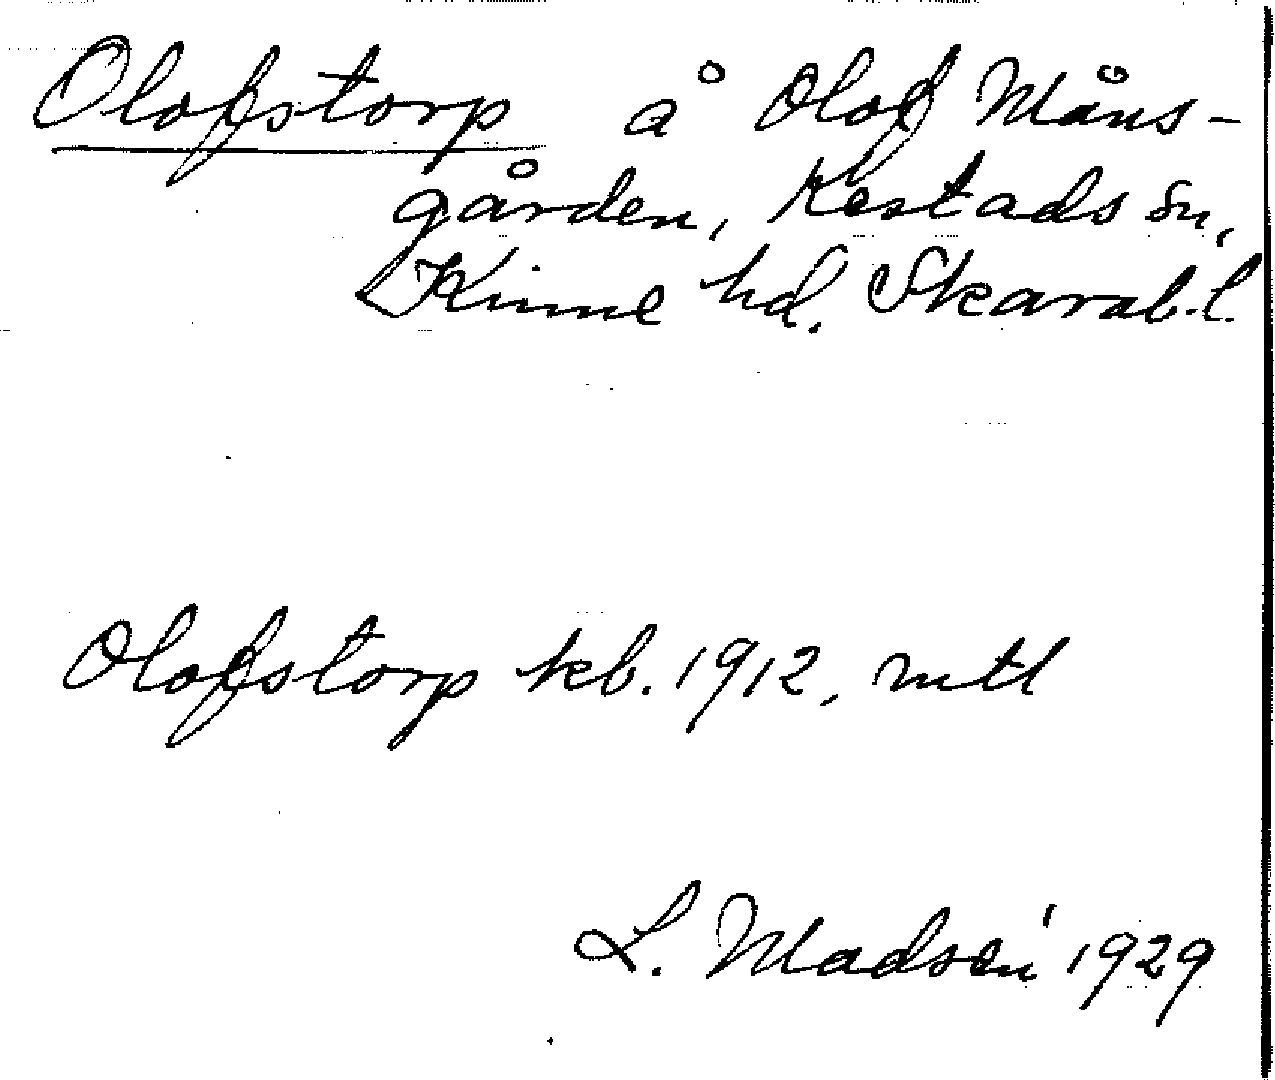 Olofstorp å Olof Måns-
gården, Kestads sn,
Kinne hd. Skarab.l.
Olofstorp kb. 1912, mtl
L. Madsén 1929